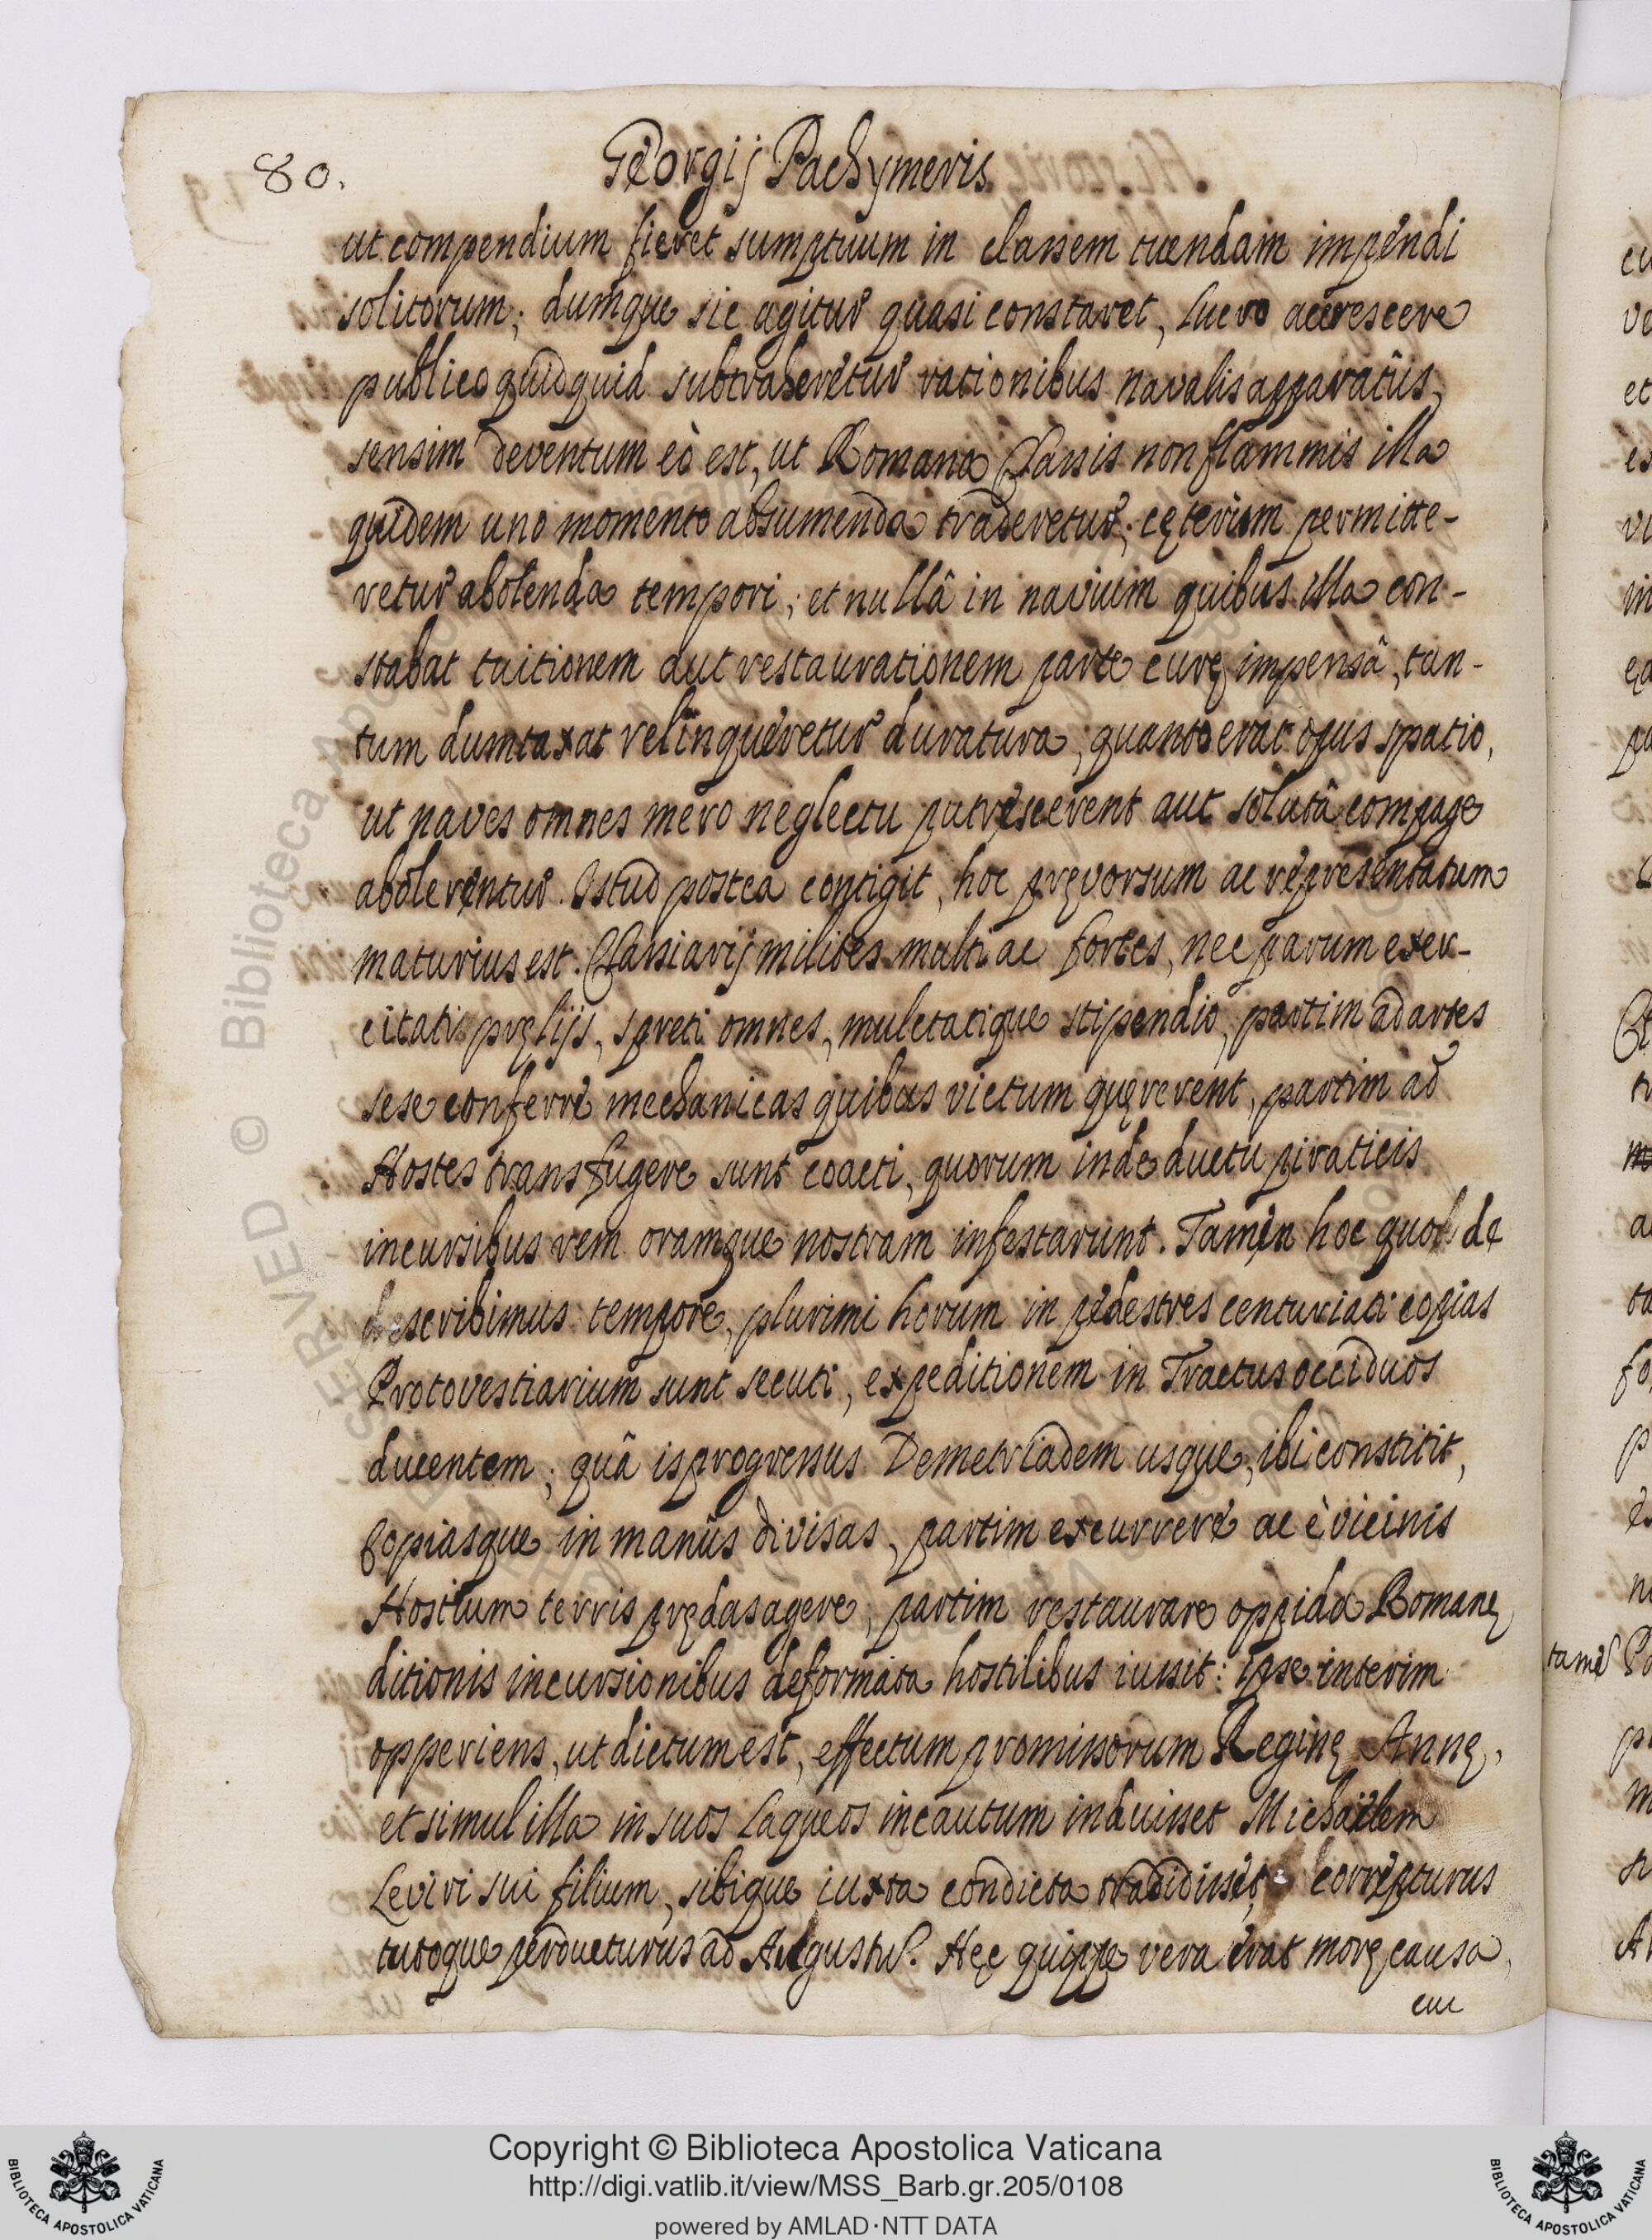 80.
Georgij Pachymeris
ut compendium fieret sumptuum in classem tuendam impendi
solitorum; dumque sic agitur quasi constaret, lucro accrescere
publico quidquid subtraheretur rationibus navalis apparatûs,
sensim deventum eò est, ut Romana Classis non flammis illa
quidem uno momento absumenda traderetur; cęterum permitte-
retur abolenda tempori; et nullâ in navium quibus illa con-
stabat tuitionem aut restaurationem parte curę impensâ, tan-
tum dumtaxat relinqueretur duratura, quanto erat opus spatio,
ut naves omnes mero neglectu putrescerent aut solutâ compage
abolerentur. Istud postea contigit, hoc pręvorsum ac repręsentatum
maturius est. Classiarij milites multi ac fortes, nec parum exer-
citati pręlijs, spreti omnes, mulctatique stipendio, partim ad artes
sese conferre mechanicas quibus victum quęrerent, partim ad
Hostes transfugere sunt coacti, quorum inde ductu piraticis
incursibus rem oramque nostram infestarunt. Tamen hoc quod de
describimus tempore, plurimi horum in pedestres centuriati copias
Protovestiarium sunt secuti, expeditionem in Tractus occiduos
ducentem; quâ is progressus Demetriadem usque, ibi constitit,
Copiasque in manus divisas, partim excurrere ac è vicinis
Hostium terris prędas agere, partim restaurare oppida Romanę
ditionis incursionibus deformata hostilibus iussit: ipse interim
opperiens, ut dictum est, effectum promissorum Reginę Annę,
et simul illa in suos laqueos incautum induisset Michaëlem
Leviri sui filium, sibique iuxta condicta tradidisset, correpturus
tutoque perducturus ad August. Hęc quippe vera erat morę causa,
cui
tame
Copyright © Biblioteca Apostolica Vaticana
http://digi.vatlib.it/view/MSS_Barb.gr.205/0108
powered by AMLAD·NTT DATA
BIBLIOTECA APOSTOLICA VATICANA
BIBLIOTECA APOSTOLICA VATICANA